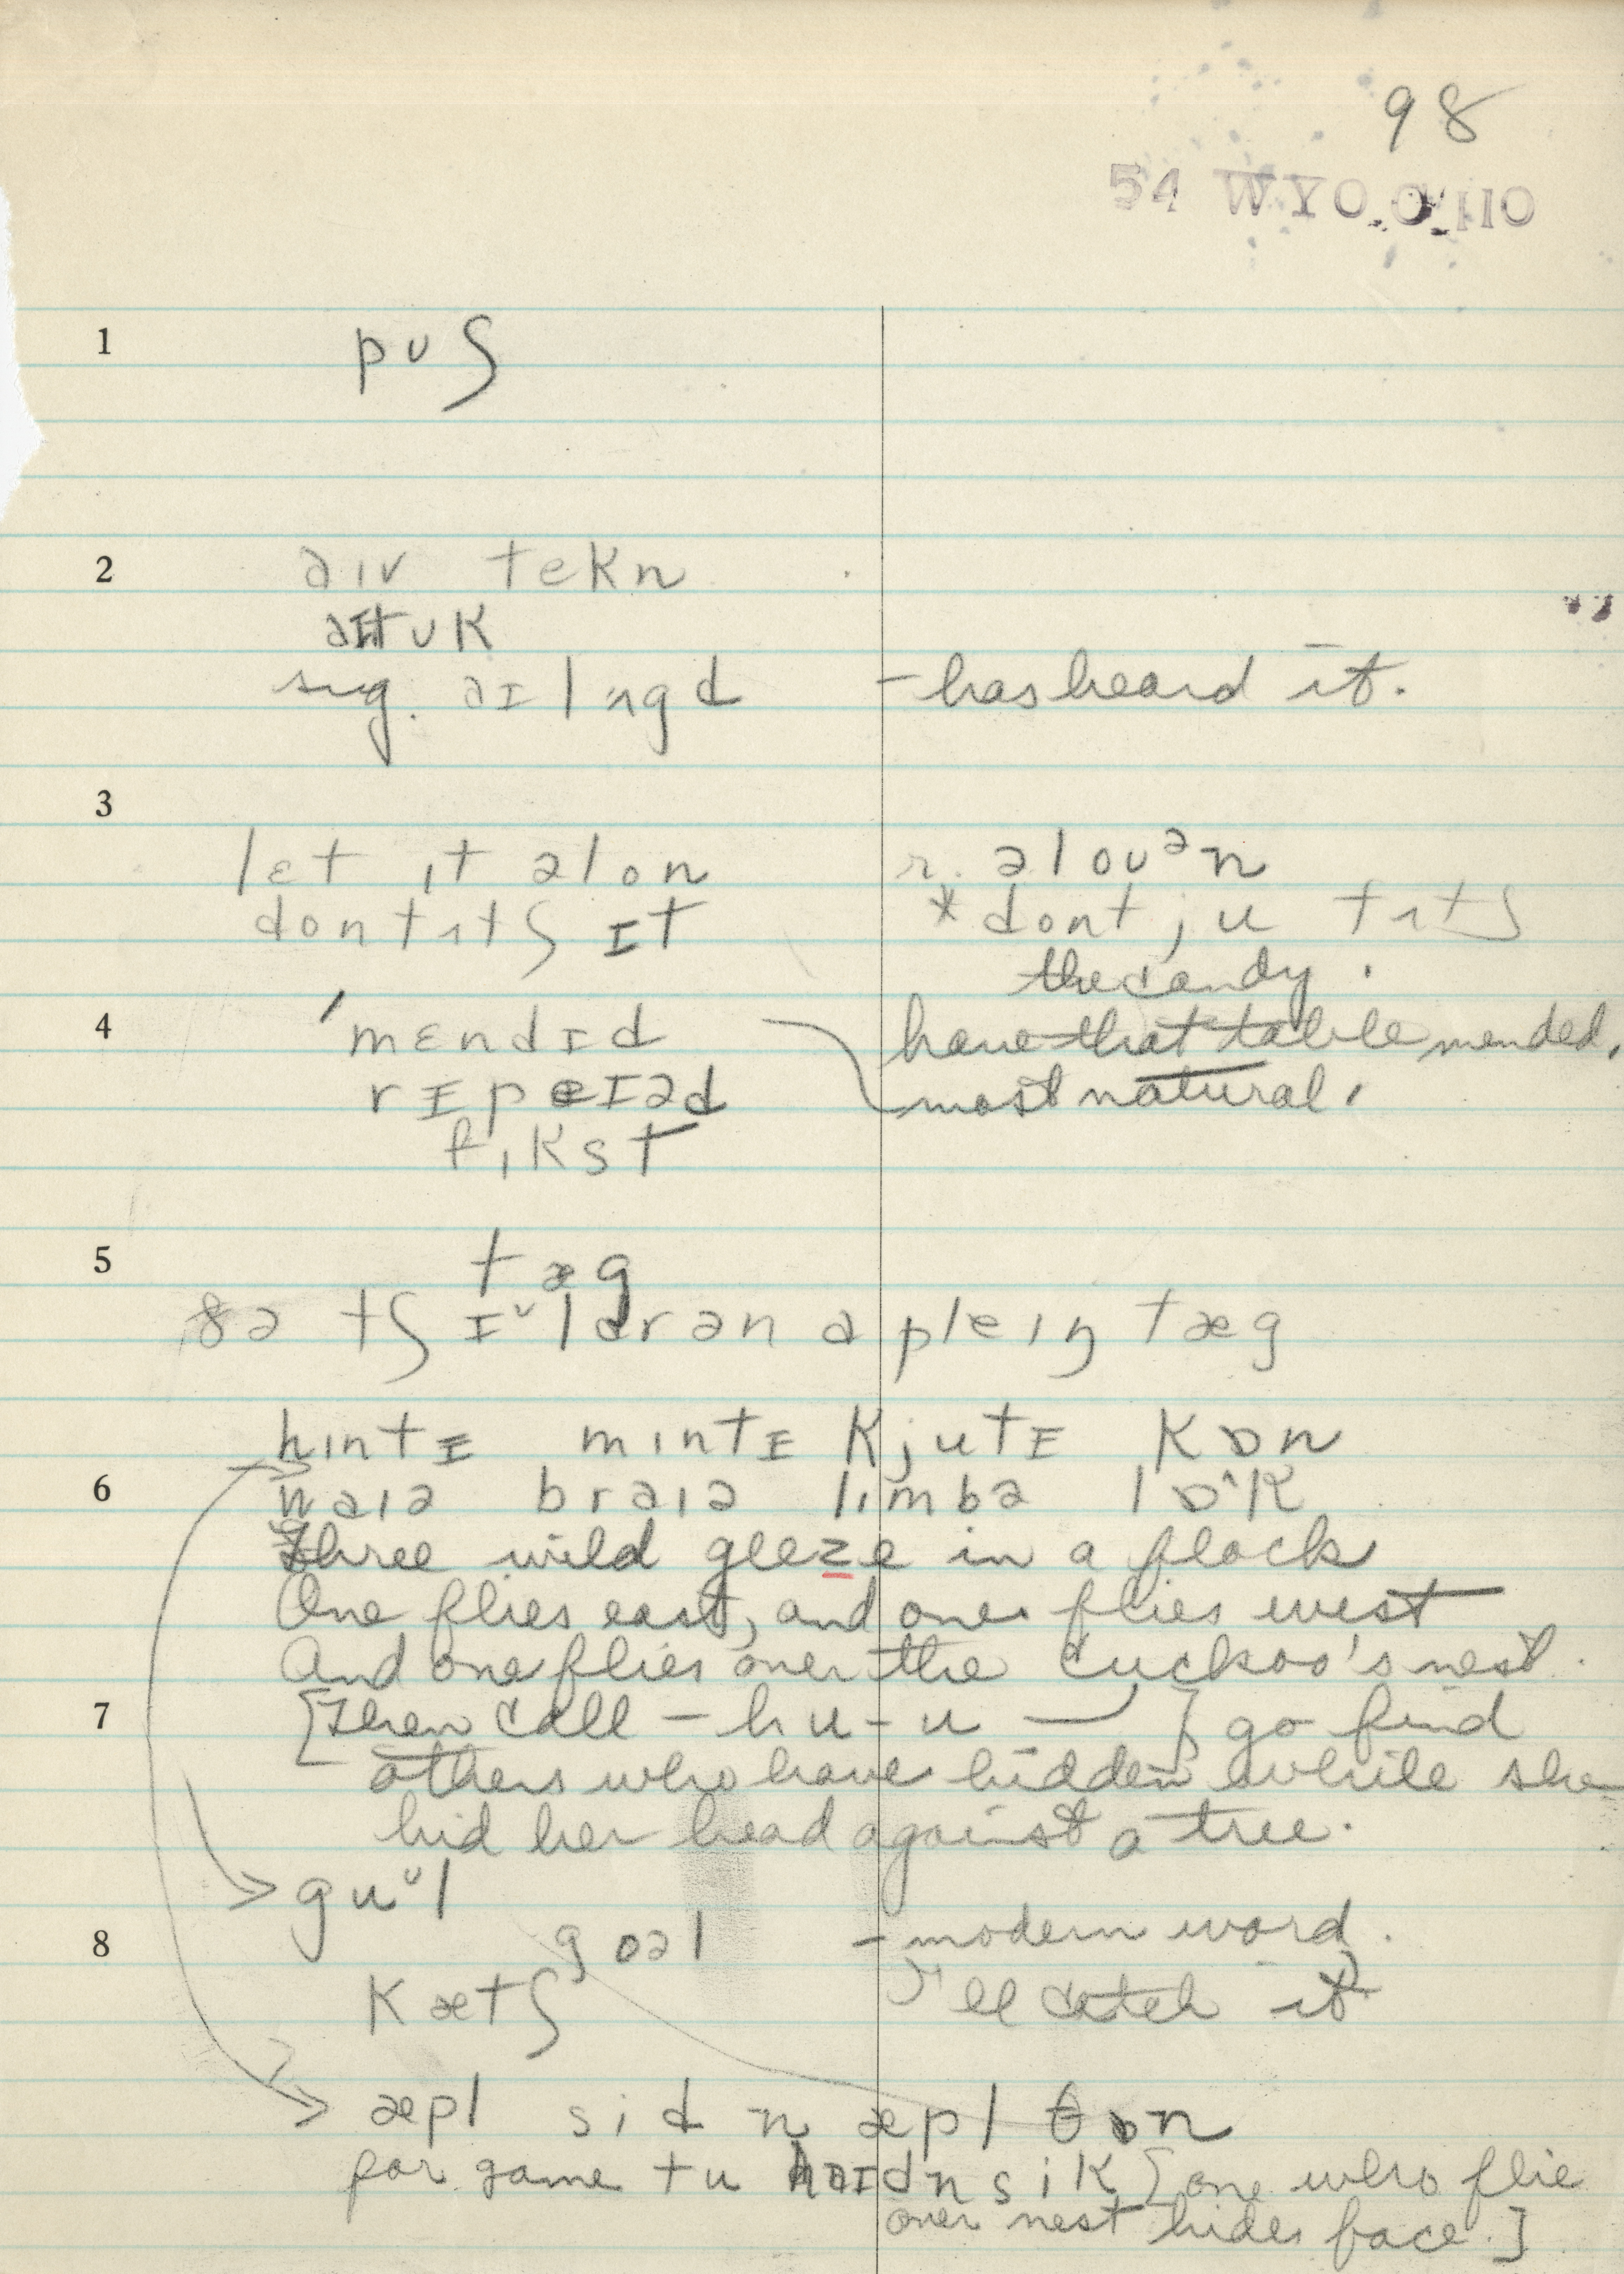 98
54 WYO O 110
1 pʊʃ
2 aɪv tekn
aɪtʊk
sug. aɪlɑgd - has heard it.
3
let ɪt əlon r. əloʊᵊn
dontʌtʃ ɪt * dont ju tʌtʃ
the candy.
4 ˈmɛndɪd have that table mended,
rɪpæɪəd most natural.
fɪkst
5 tæg
ðə tʃɪᵛldrən a pleɪŋ tæg
hɪntɪ mɪntɪ kjutɪ kɒn
6 waɪə braɪə lɪmbə lɒˆk
Three wild geeze in a flock
One flies east, and one flies west
And one flies over the cuckoo's nest.
7 [Then call - hu-u —] go find
others who have hidden while she
hid her head against a tree.
guᵛl
8 goəl - modern word.
kætʃ I'll catch it
æpl sidn æpl θɒn
for game tu haɪdnsik [one who flie
over nest hides face.]